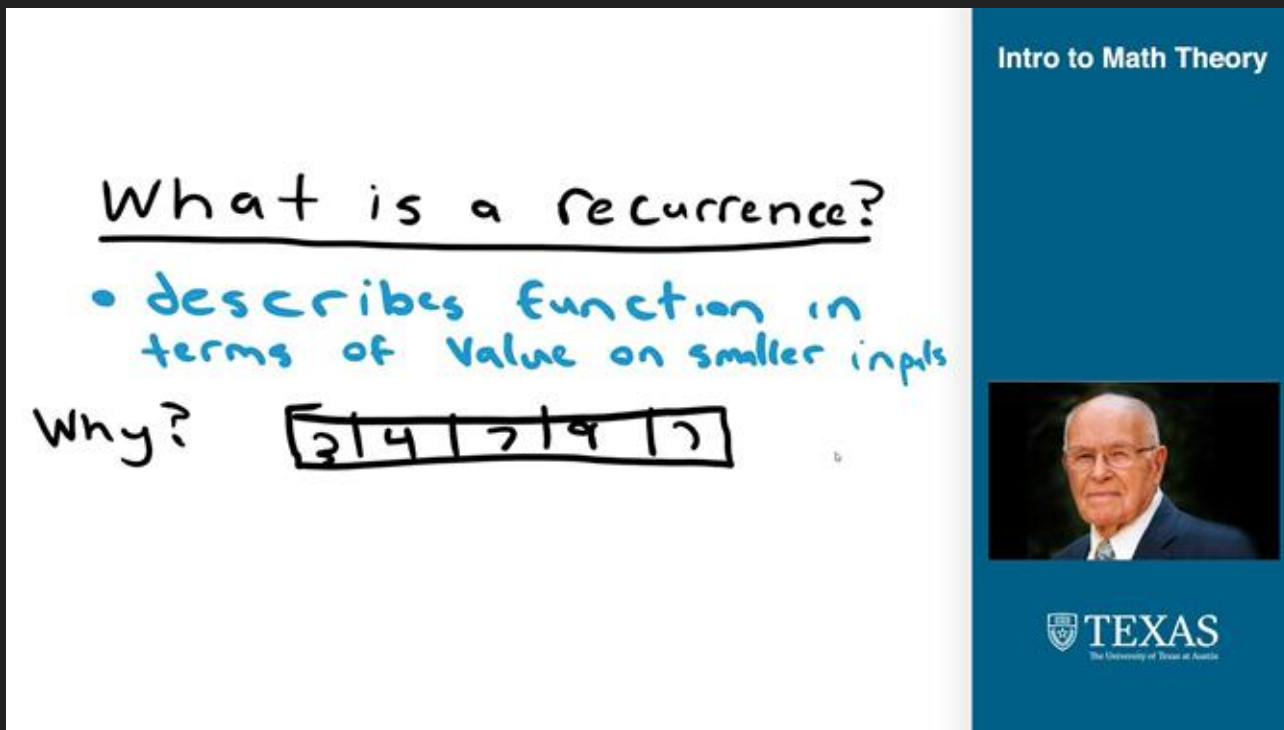 Intro to Math Theory
What is a recurrence?
• describes function in
terms of value on smaller inputs
Why? 3 4 7 9 7
TEXAS
The University of Texas at Austin